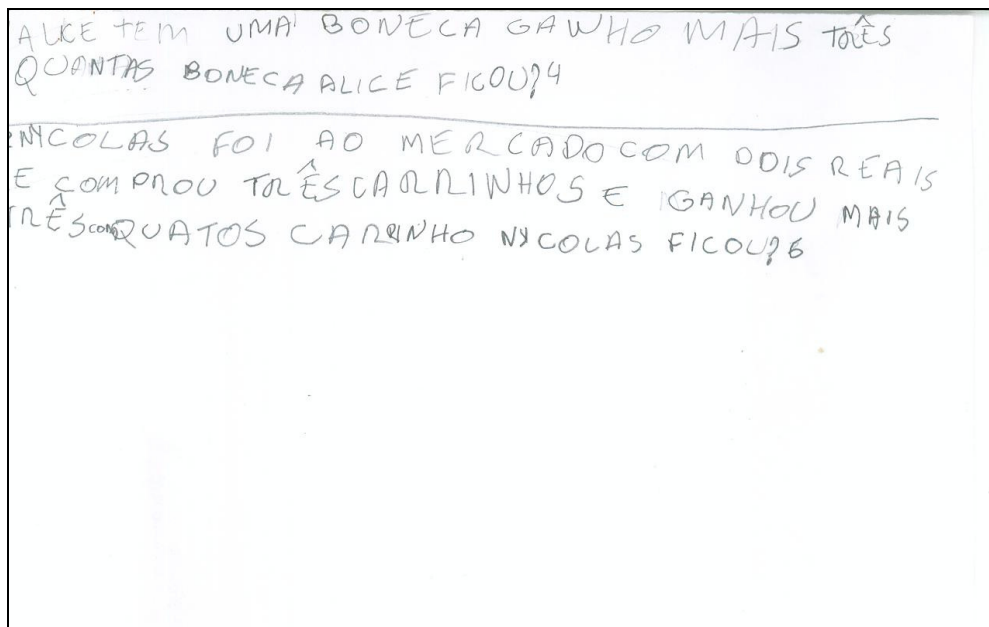 ALICE TEM UMA BONECA GAWHO MAIS TRÊS
QUANTAS BONECA ALICE FICOU?4
NYCOLAS FOI AO MERCADO COM DOIS REAIS
E COMPROU TRÊS CARRINHOS E GANHOU MAIS
TRÊS COM QUATOS CARRINHO NYCOLAS FICOU?6